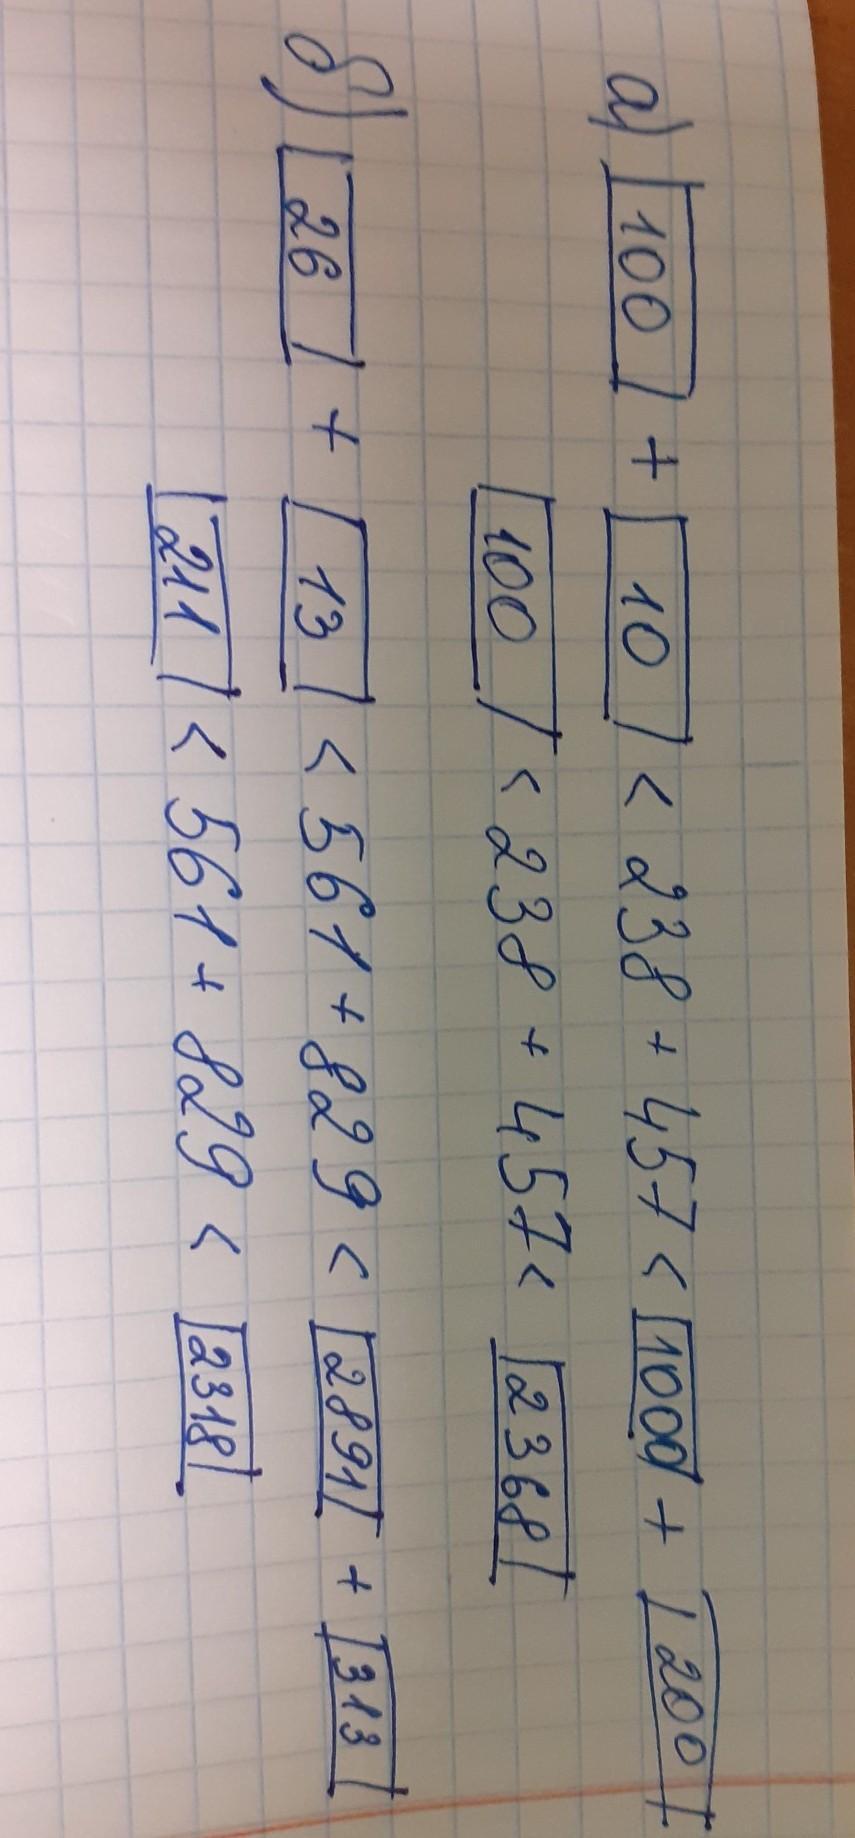 а) 100 + 10 < 238 + 457 < 1000 + 200
100 < 238 + 457 < 2368
б) 26 + 13 < 561 + 829 < 2891 + 313
211 < 561 + 829 < 2318